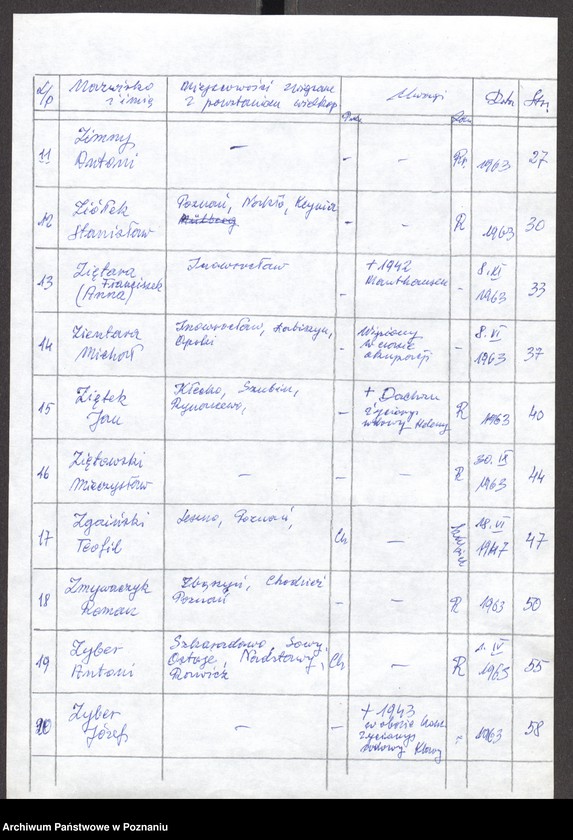 L/p Nazwisko i imię Miejscowości związane z powstaniem wielkop. Uwagi Data Str.
11 Zimny Antoni — - — 1963 27
12 Ziółek Stanisław Poznań, Nakło, Kcynia - — R 1963 30
13 Ziętara Franciszek (Anna) Inowrocław - + 1942 Mauthausen - 8. XI 1963 33
14 Zientara Michał Inowrocław, Łabiszyn, - w czasie okupacji - 8. VI 1963 37
15 Ziętek Jan Kłecko, Szubin, Rynarzewo, - + Dachau życiorys wdowy R 1963 40
16 Ziętowski Mieczysław — - — R 30. IX 1963 44
17 Zgaiński Teofil Leszno, Poznań, Ch — 18. VI 1947 47
18 Zmywaczyk Roman Zbąszyń, Chodzież Poznań - — R 1963 50
19 Zyber Antoni Szkaradowo, Sowy, Rawicz Ch — R 1. IV 1963 55
20 Zyber Józef — - + 1943 w obozie życiorys wdowy - 1963 58
Archiwum Państwowe w Poznaniu